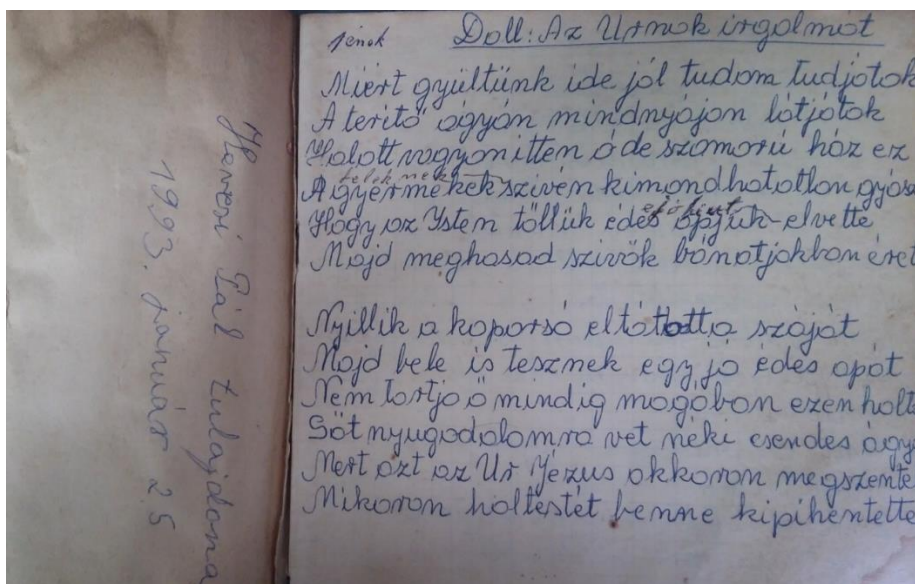 Hevesi Pál tulajdona
1993. január 25
jenek Dall: Az Urnak irgalmát
Miért gyültünk ide jól tudom tudjátok
A teritő ágyán mindnyájan látjátok
Halott vagyon itten ó de szomorú ház ez
feleknek
A gyermekek szivén kimondhatatlan gyász
Hogy az Isten töllük édes apjuk elvette
Majd meghasad szivök bánatjokban
Nyillik a koporsó eltátotta száját
Majd bele is tesznek egy jó édes apát
Nem tartja ő mindig magában ezen holt
Sőt nyugodalomra vet néki csendes ágy
Mert azt az Ur Jézus akkoron megszente
Mikoron holtestét benne kipihentette